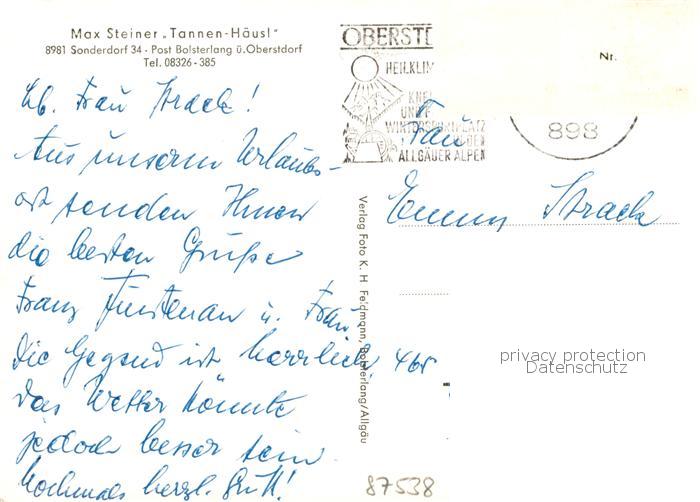 Max Steiner „Tannen-Häusl"
8981 Sonderdorf 34 · Post Bolsterlang ü. Oberstdorf
Tel. 08326 - 385
Lb. Frau Strack!
Aus unserem Urlaubs-
ort senden Ihnen
die besten Grüße
Franz Fürstenau u. Frau
Die Gegend ist herrlich
das Wetter könnte
jedoch besser sein.
Nochmals herzl. Gruß!
OBERST
HEILKLIM
KNEI
UND
WINTERSPORTPLATZ
DEN
ALLGÄUER ALPEN
Nr.
898
Frau
Emmy Strack
Verlag Foto K. H. Feigmann, Bolsterlang/Allgäu
465
privacy protection
Datenschutz
87538